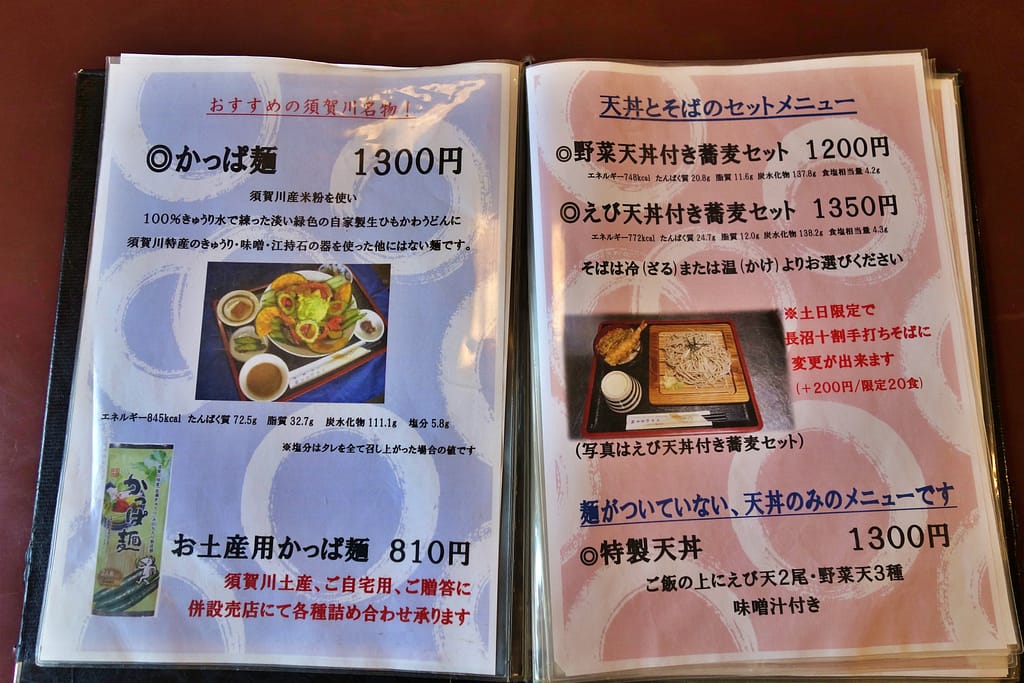 おすすめの須賀川名物！
◎かっぱ麺 1300円
須賀川産米粉を使い
100%きゅうり水で練った淡い緑色の自家製生ひもかわうどんに
須賀川特産のきゅうり・味噌・江持石の器を使った他にはない麺です。
エネルギー845kcal たんぱく質 72.5g 脂質 32.7g 炭水化物 111.1g 塩分 5.8g
※塩分はタレを全て召し上がった場合の値です
かっぱ麺
お土産用かっぱ麺 810円
須賀川土産、ご自宅用、ご贈答に
併設売店にて各種詰め合わせ承ります
天丼とそばのセットメニュー
◎野菜天丼付き蕎麦セット 1200円
エネルギー748kcal たんぱく質 20.8g 脂質 11.6g 炭水化物 137.8g 食塩相当量 4.2g
◎えび天丼付き蕎麦セット 1350円
エネルギー772kcal たんぱく質 24.7g 脂質 12.0g 炭水化物 138.2g 食塩相当量 4.3g
そばは冷(ざる)または温(かけ)よりお選びください
※土日限定で
長沼十割手打ちそばに
変更が出来ます
(+200円/限定20食)
(写真はえび天丼付き蕎麦セット)
麺がついていない、天丼のみのメニューです
◎特製天丼 1300円
ご飯の上にえび天2尾・野菜天3種
味噌汁付き